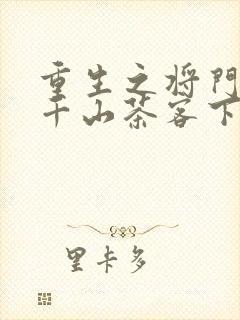 重生之将门
千山茶客下
里卡多